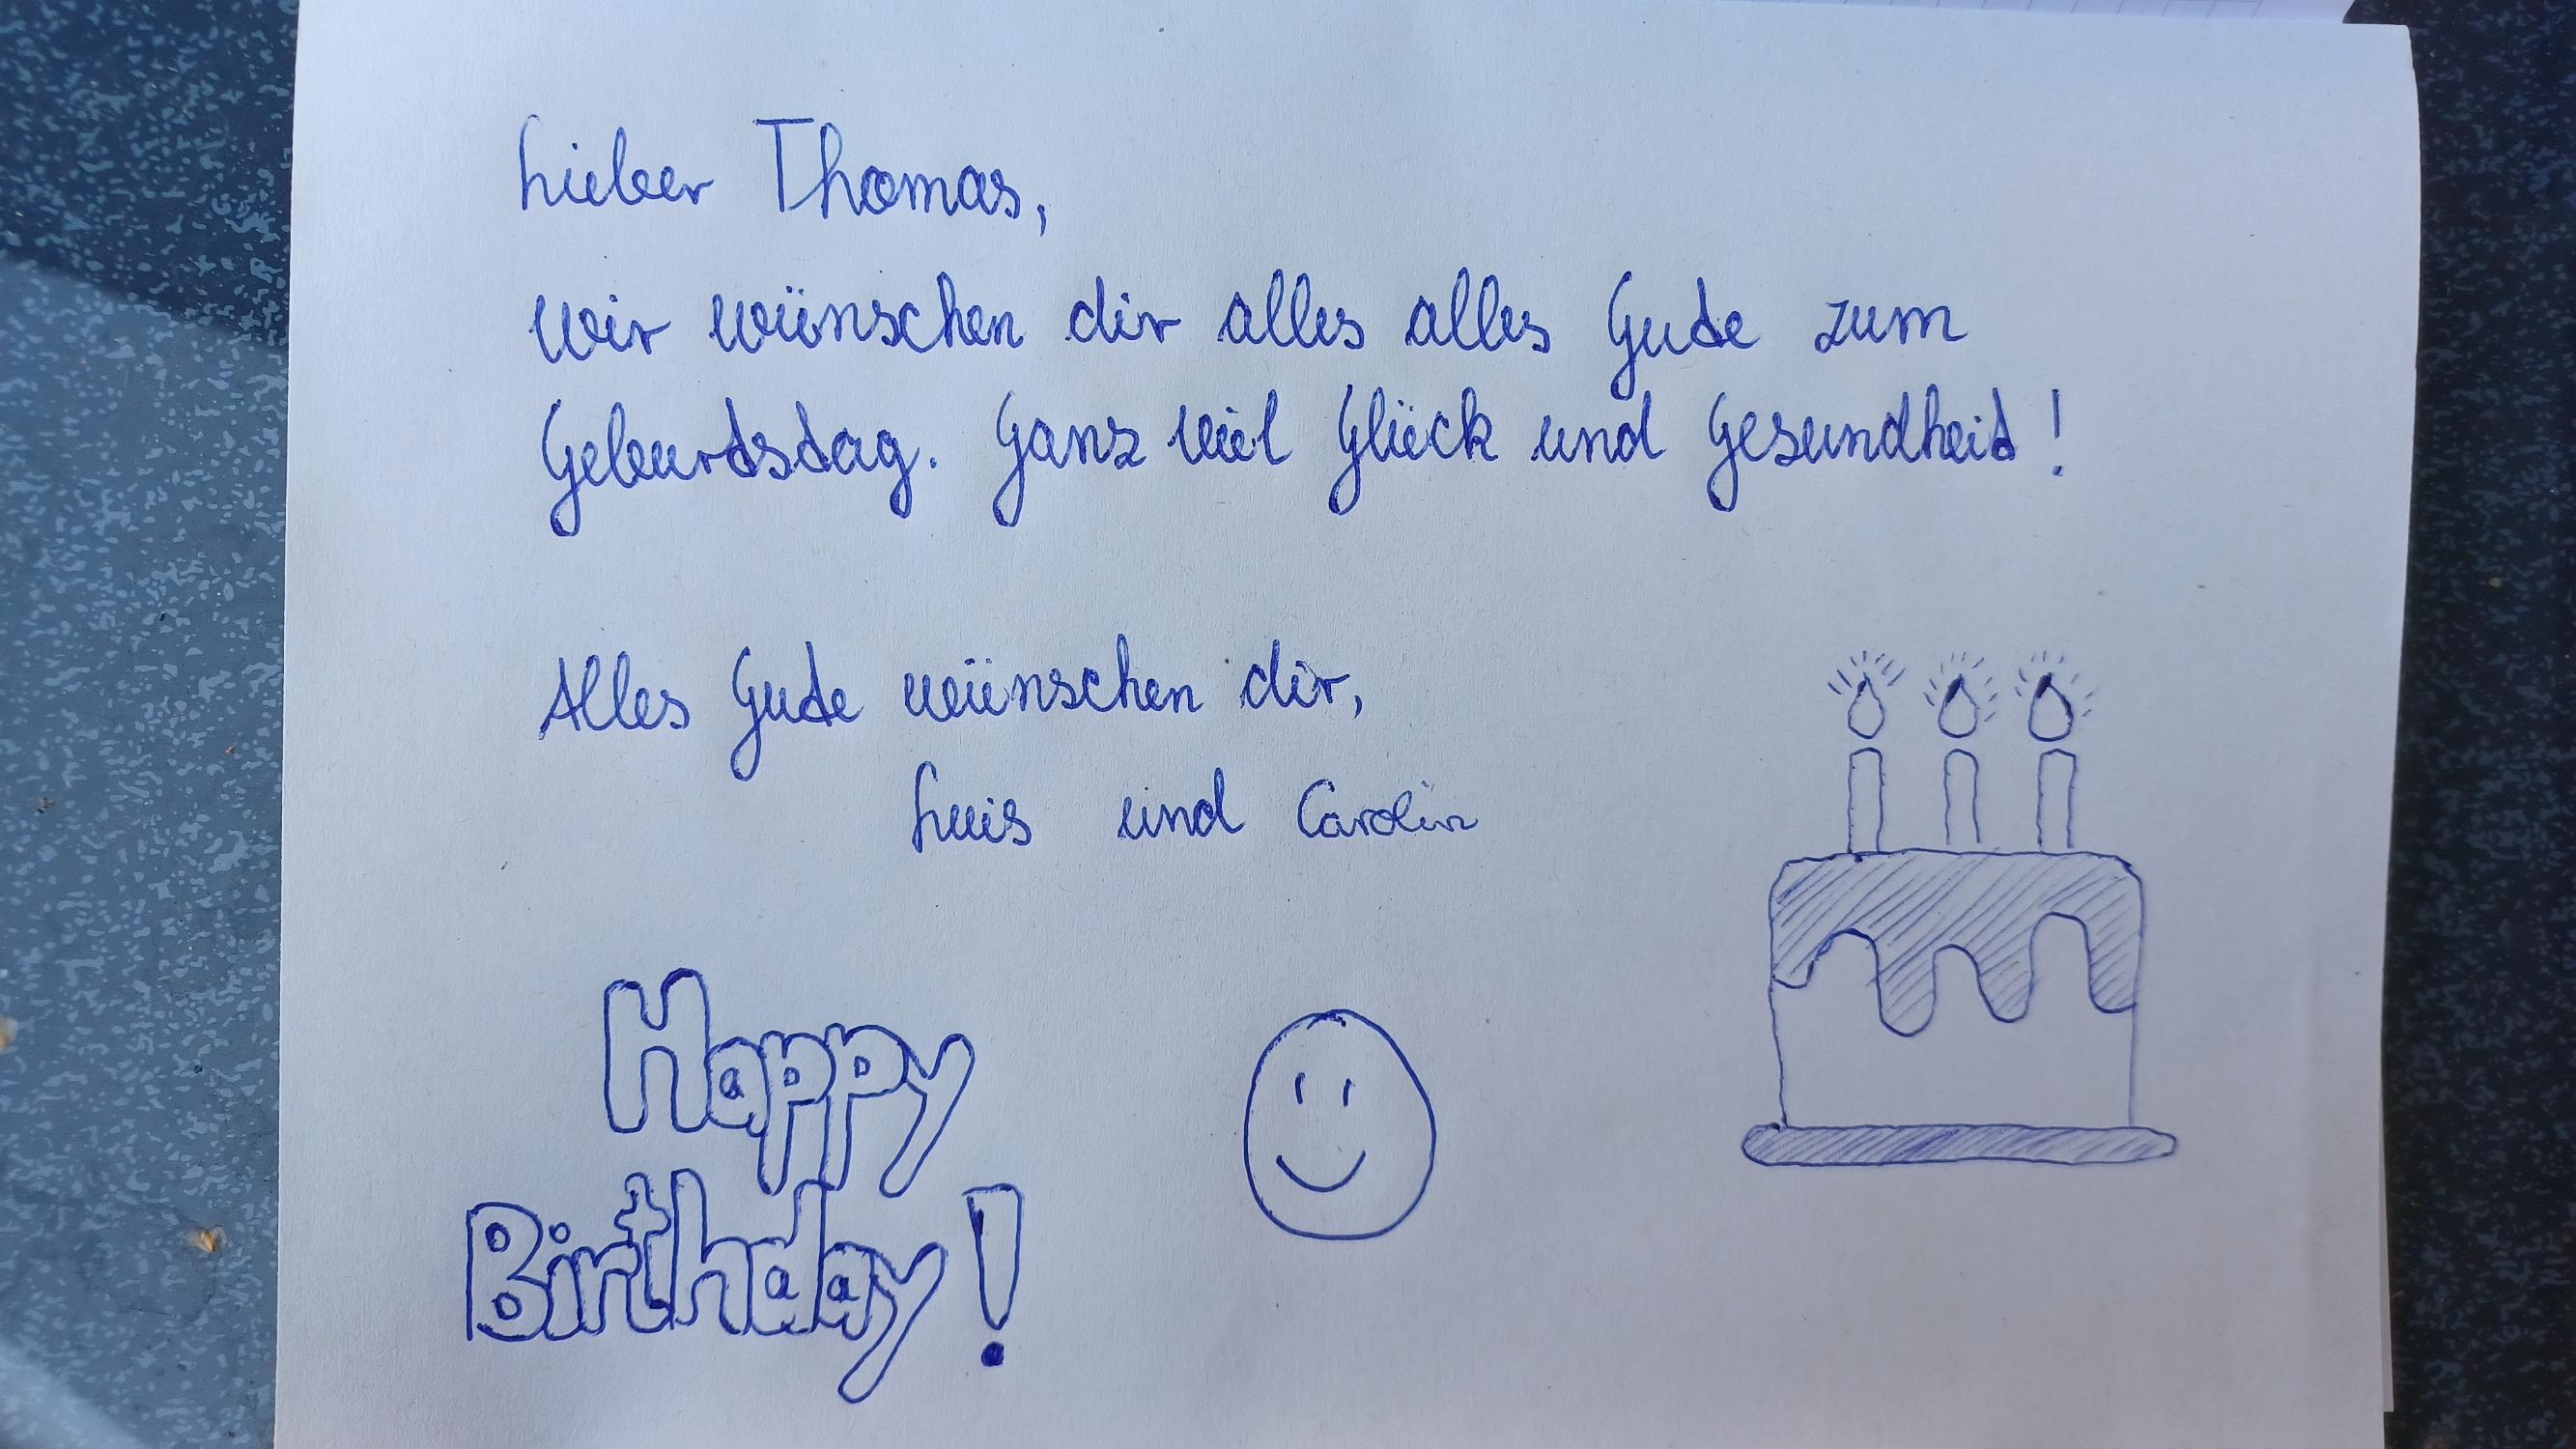 Lieber Thomas,
wir wünschen dir alles alles Gute zum
Geburtstag. Ganz viel Glück und Gesundheit!
Alles Gute wünschen dir,
Luis und Carolin
Happy
Birthday!